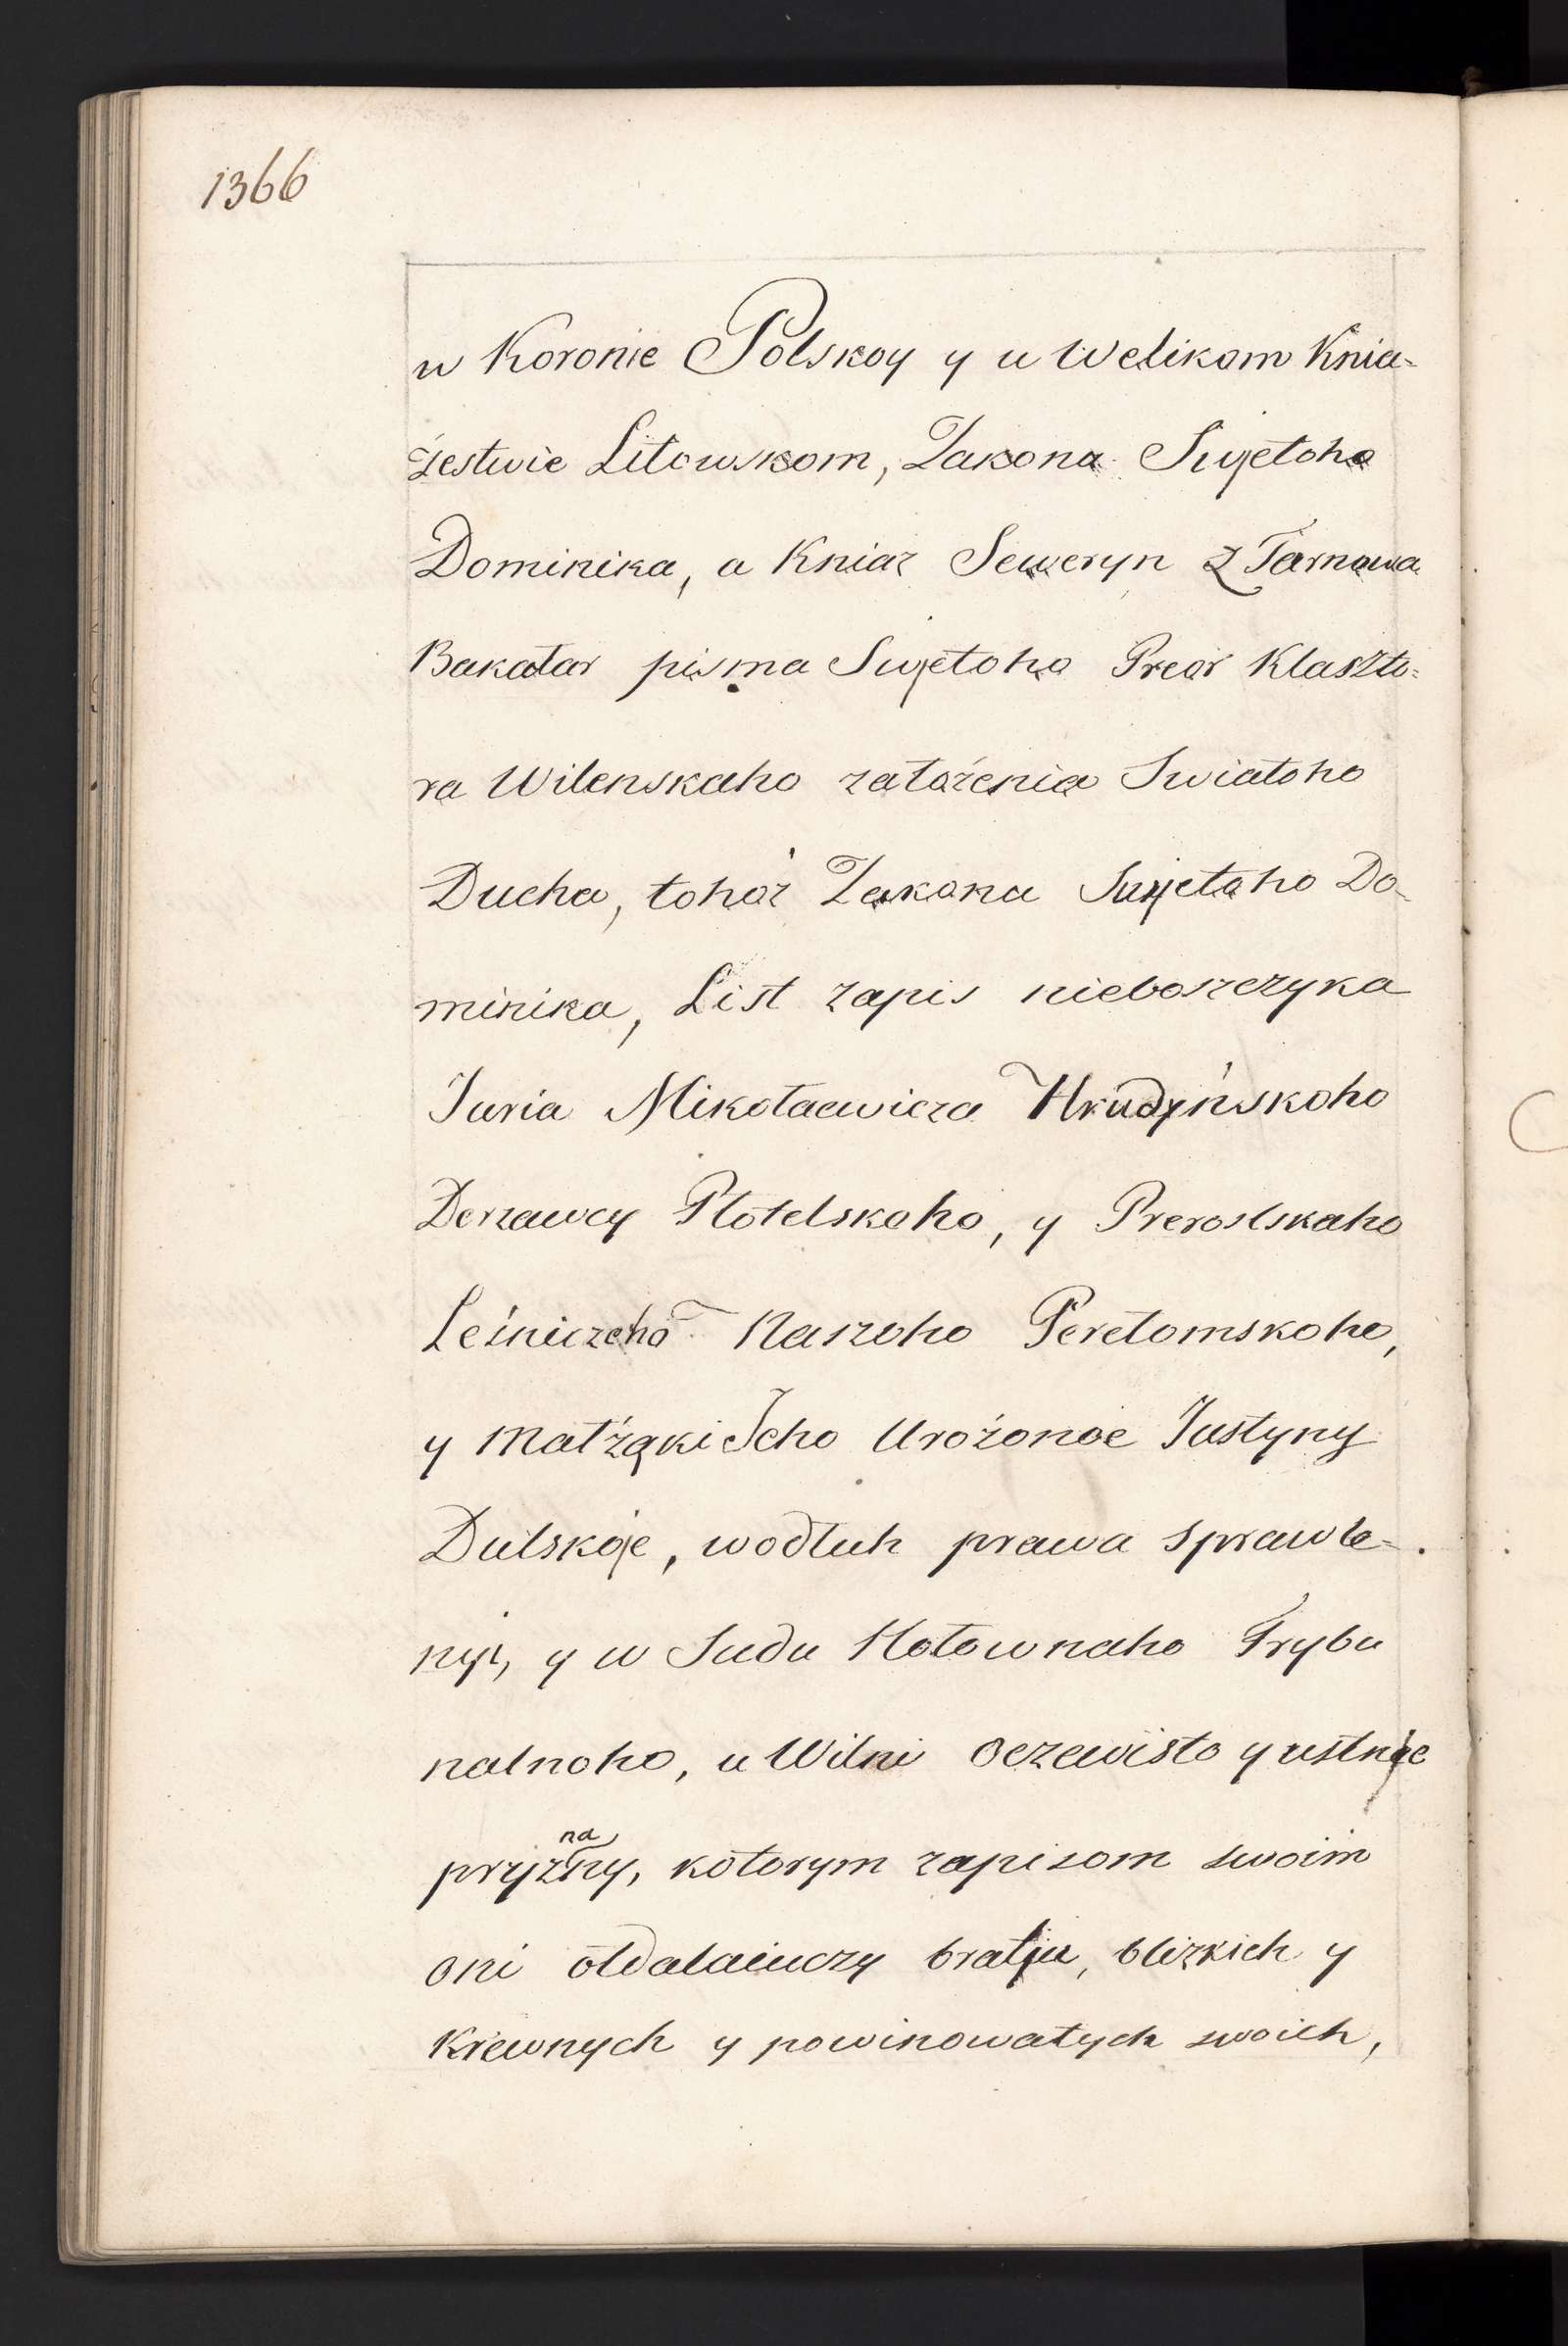 1366
w Koronie Polskoy y u Welikom Knia-
żestwie Litowskom, Zakona Swjetoho
Dominika, a Kniaz Seweryn z Tarnowa
Bakałar pisma Swjetoho Preor Klaszto-
ra Wilenskaho założenia Swiatoho
Ducha, tohoż Zakona Swjetoho Do-
minika, List zapis nieboszczyka
Juria Mikołaewicza Hrudyńskoho
Derzawcy Płotelskoho, y Preroslskaho
Leśniczeho Naszoho Perełomskoho,
y Małżąki Jeho Urożonoe Justyny
Dulskoje, wodłuh prawa sprawle-
nyi, y w Sudu Hołownaho Trybu
nalnoho, u Wilni oczewisto y ustnie
pryznany, kotorym zapisom swoim
oni otdalaiuczy bratju, blizkich y
Krewnych y powinowatych swoich,